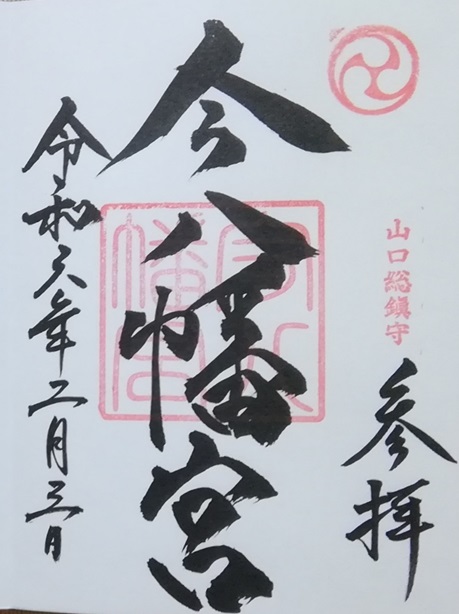 山口総鎮守
参拝
今八幡宮
令和六年二月三日